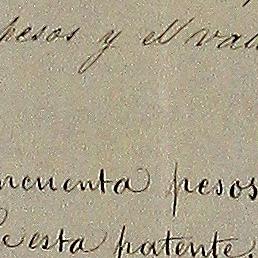 pesos y el val
ncuenta pesos
esta patente.